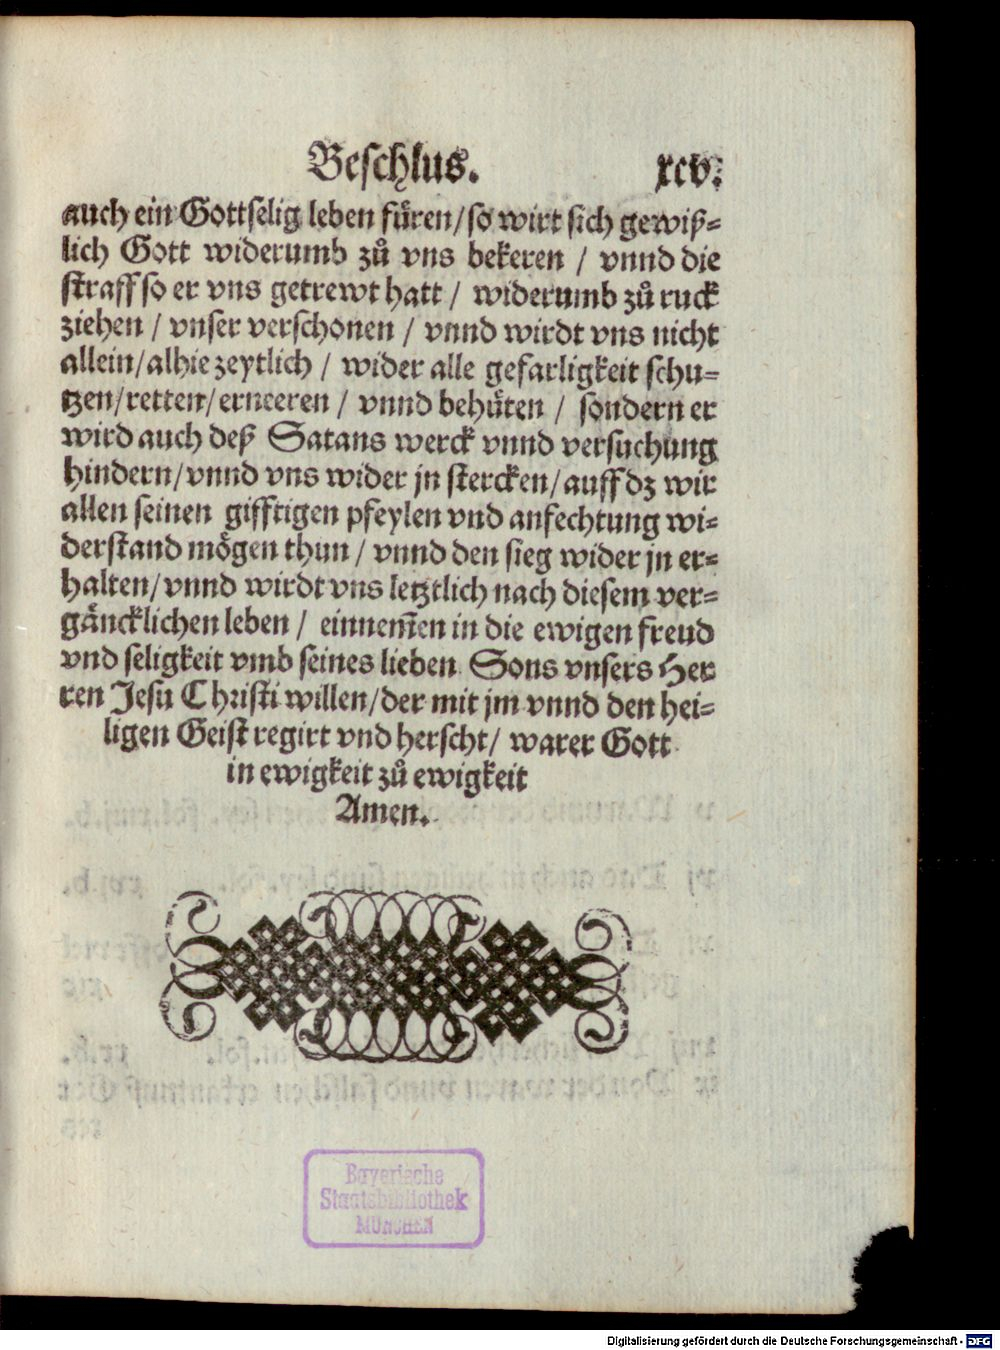 Beschlus. xcv.
auch ein Gottselig leben fuͤren/so wirt sich gewiß-
lich Gott widerumb zuͦ vns bekeren / vnnd die
straff so er vns getrewt hatt / widerumb zuͦ ruck
ziehen / vnser verschonen / vnnd wirdt vns nicht
allein/alhie zeytlich / wider alle gefarligkeit schu-
tzen/retten/erneeren / vnnd behuͤten / sondern er
wird auch deß Satans werck vnnd versuchung
hindern/vnnd vns wider jn stercken/auff dz wir
allen seinen gifftigen pfeylen vnd anfechtung wi-
derstand moͤgen thun / vnnd den sieg wider jn er-
halten/vnnd wirdt vns letztlich nach diesem ver-
gaͤncklichen leben / einnem̃en in die ewigen freud
vnd seligkeit vmb seines lieben Sons vnsers Her
ren Jesu Christi willen/der mit jm vnnd den hei-
ligen Geist regirt vnd herscht/ warer Gott
in ewigkeit zuͦ ewigkeit
Amen.
Bayerische
Staatsbibliothek
MÜNCHEN
Digitalisierung gefördert durch die Deutsche Forschungsgemeinschaft - DFG